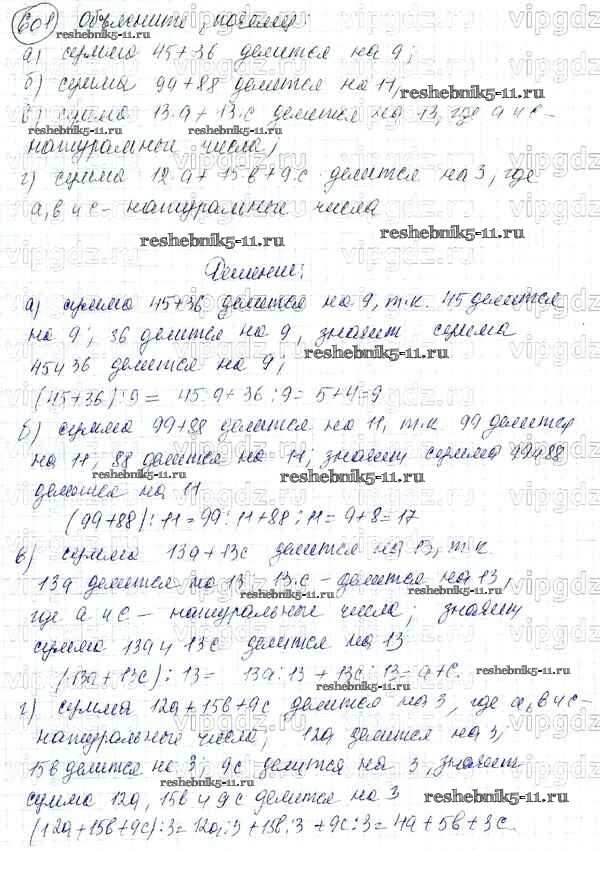 601 Объясните, почему:
а) сумма 45+36 делится на 9;
б) сумма 99+88 делится на 11,
в) сумма 13·а+13·с делится на 13, где а и с –
натуральные числа;
г) сумма 12·а+15в+9·с делится на 3, где
а, в и с – натуральные числа
Решение:
а) сумма 45+36 делится на 9, т.к. 45 делится
на 9; 36 делится на 9, значит сумма
45 и 36 делится на 9;
(45+36):9= 45:9+36:9=5+4=9
б) сумма 99+88 делится на 11, т.к. 99 делится
на 11; 88 делится на 11; значит сумма 99 и 88
делится на 11
(99+88):11=99:11+88:11=9+8=17
в) сумма 13а+13с делится на 13, т.к.
13а делится на 13; 13·с – делится на 13,
где а и с – натуральные числа; значит
сумма 13а и 13с делится на 13
(13а+13с):13= 13а:13+13с:13=а+с.
г) сумма 12а+15в+9с делится на 3, где а, в и с –
натуральные числа; 12а делится на 3;
15в делится на 3; 9с делится на 3, значит
сумма 12а, 15в и 9с делится на 3
(12а+15в+9с):3=12а:3+15в:3+9с:3=4а+5в+3с.
reshebnik5-11.ru
vipgdz.ru